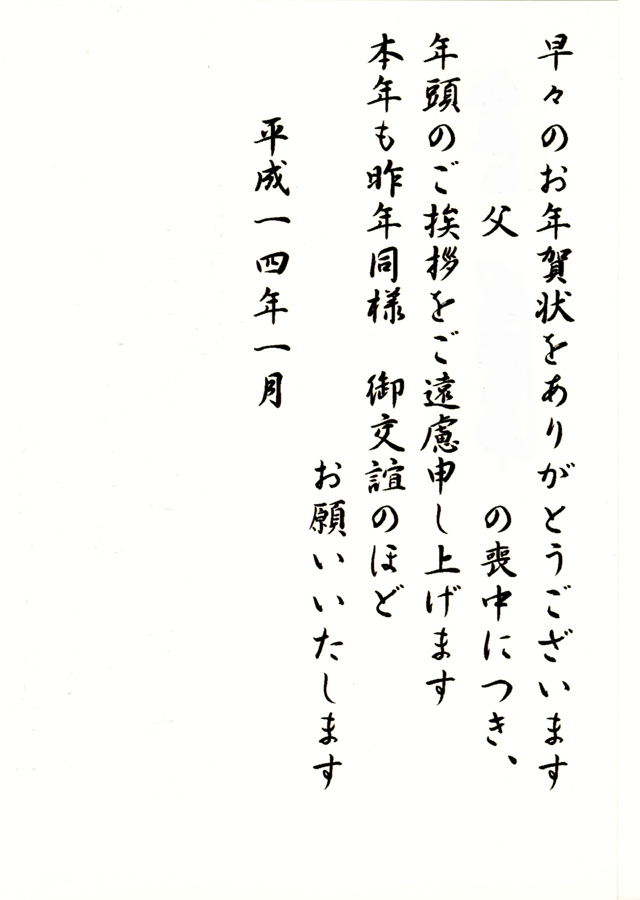 早々のお年賀状をありがとうございます
父　の喪中につき、
年頭のご挨拶をご遠慮申し上げます
本年も昨年同様　御交誼のほど
お願いいたします
平成一四年一月